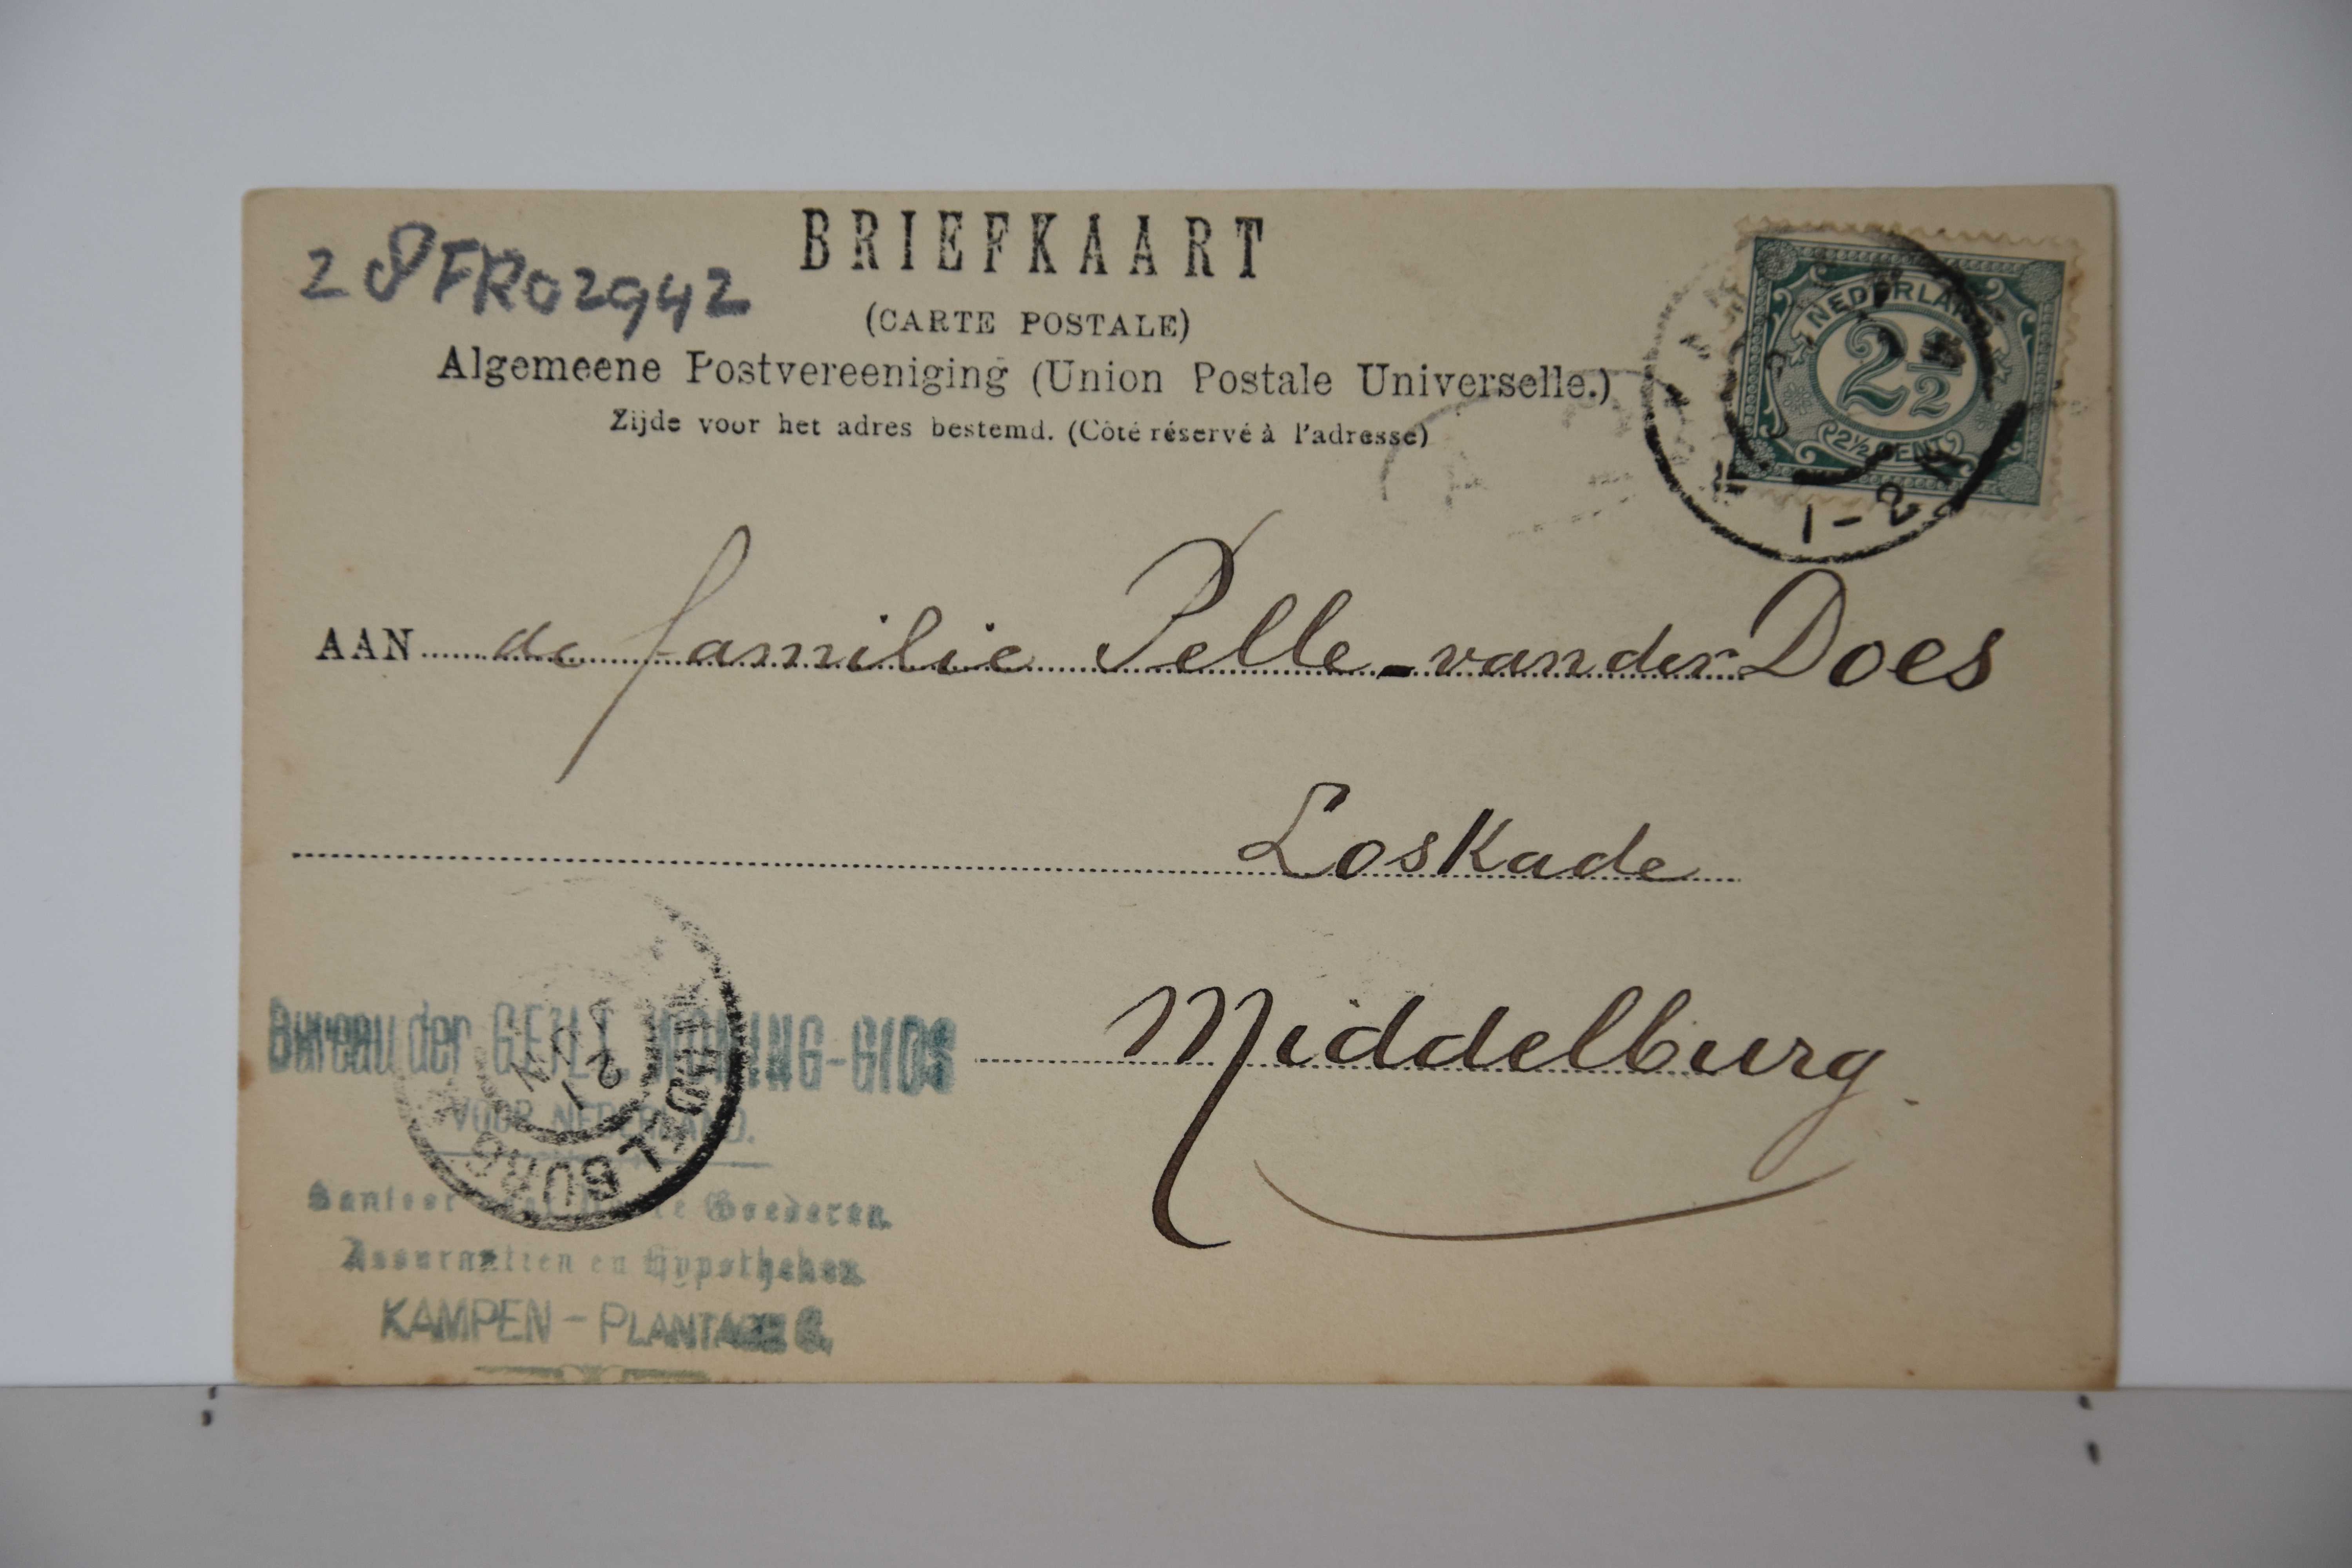 BRIEFKAART
28FR02942
(CARTE POSTALE)
Algemeene Postvereeniging (Union Postale Universelle.)
Zijde voor het adres bestemd. (Côté réservé à l'adresse)
NEDERLAND
2½
2½ CENT
1-2N
AAN de familie Pelle-van der Does
Loskade
Middelburg.
Bureau der GEÏLL. KONING-GIDS
VOOR NEDERLAND.
Goederen.
Assurantien en Hypotheken.
KAMPEN - PLANTAGE
MIDDELBURG